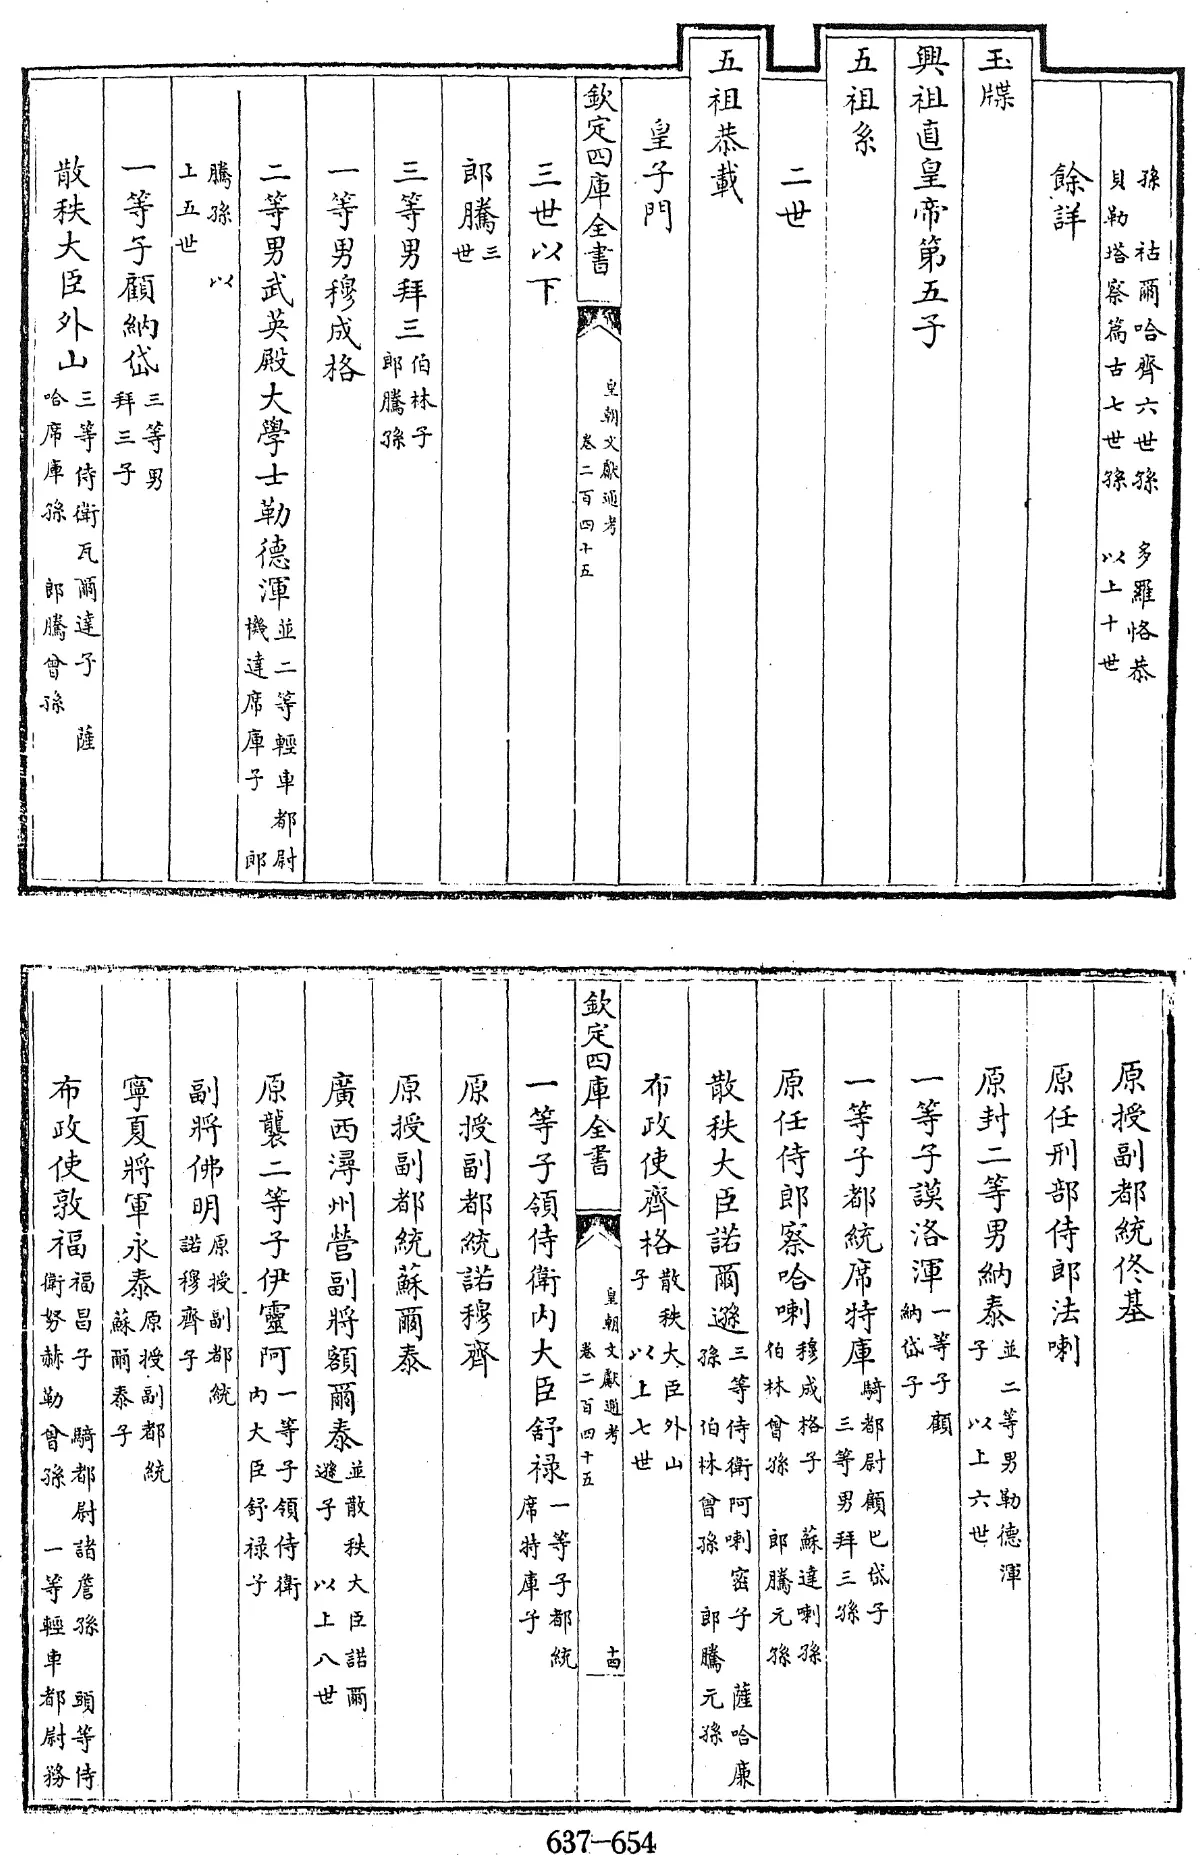 孫　祜爾哈齊六世孫　多羅恪恭
貝勒塔察篇古七世孫　以上十世
餘詳
玉牒
興祖直皇帝第五子
五祖系
二世
五祖恭載
皇子門
欽定四庫全書
皇朝文獻通考
卷二百四十五
三世以下
郎騰三世
三等男拜三伯林子
郎騰孫
一等男穆成格
二等男武英殿大學士勒德渾並二等輕車都尉
機達席庫子　郎
騰孫　以
上五世
一等子顧納岱三等男
拜三子
散秩大臣外山三等侍衛瓦爾達子　薩
哈席庫孫　郎騰曾孫
原授副都統佟基
原任刑部侍郎法喇
原封二等男納泰並二等男勒德渾
子　以上六世
一等子謨洛渾一等子顧
納岱子
一等子都統席特庫騎都尉顧巴岱子
三等男拜三孫
原任侍郎察哈喇穆成格子　蘇達喇孫
伯林曾孫　郎騰元孫
散秩大臣諾爾遜三等侍衛阿喇密子　薩哈廉
孫　伯林曾孫　郎騰元孫
布政使齊格散秩大臣外山
子　以上七世
欽定四庫全書
皇朝文獻通考
卷二百四十五
十四
一等子領侍衛內大臣舒祿一等子都統
席特庫子
原授副都統諾穆齊
原授副都統蘇爾泰
廣西潯州營副將額爾泰並散秩大臣諾爾
遜子　以上八世
原襲二等子伊靈阿一等子領侍衛
內大臣舒祿子
副將佛明原授副都統
諾穆齊子
寧夏將軍永泰原授副都統
蘇爾泰子
布政使敦福福昌子　騎都尉諸詹孫　頭等侍
衛努赫勒曾孫　一等輕車都尉務
637-654